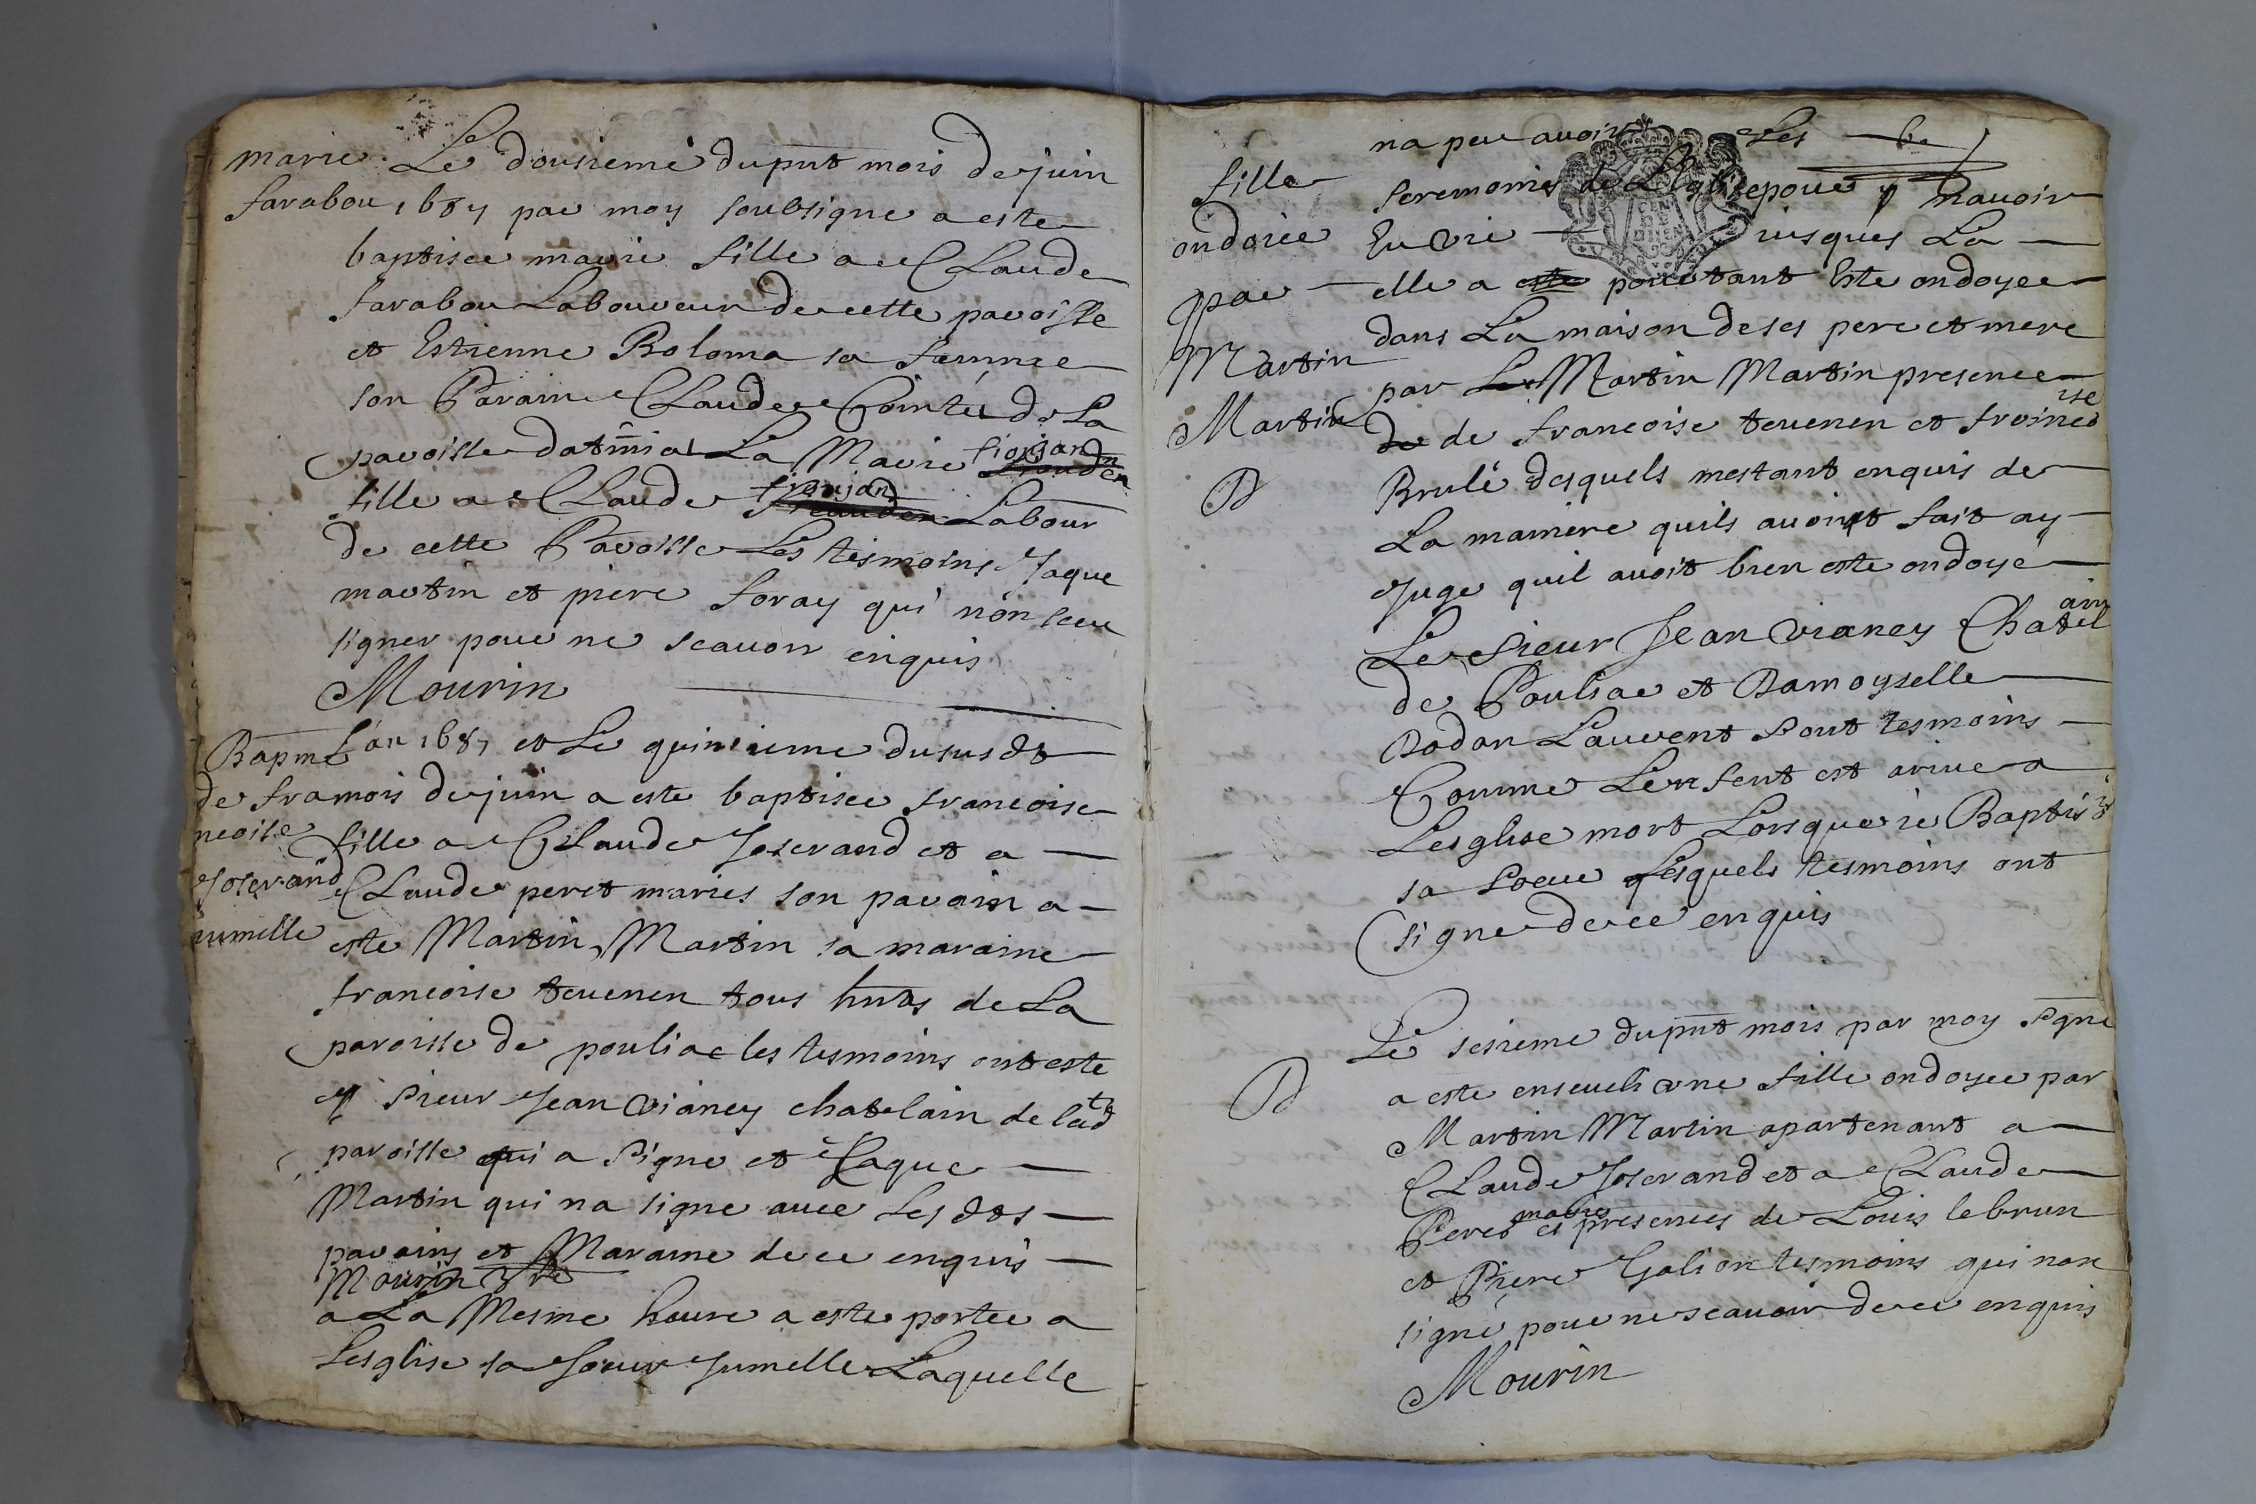 marie Le dousieme du pnt mois de juin
farabou 1687 par moy soubsigne a este
baptisee marie fille a Claude
farabou Laboureur de cette paroisse
et Estienne Boloma sa femme
son Parain Claude Cointer de La
paroisse La Marie fionjan
fille a Claude fionjan Labour
de cette Paroisse Les tesmoins Jaque
martin et piere foray qui non sceu
signer pour ne scauoir enquis
Mourin
Bapme Lan 1687 et Le quinsieme du susdt
de fra mois de juin a este baptisee francoise
ncoise fille a Claude Joserand et a
Joserand Claude peret maries son parain a
iumelle este Martin Martin sa maraine
francoise teuenen tous hnts de La
paroisse de pouliac les tesmoins ont este
Sieur Jean Vianey chatelain de ladt
paroisse qui a signe et Jaque
Martin qui na signe auec Les dts
parains et Maraine de ce enquis
Mourin
a La Mesme heure a este portee a
Lesglise sa soeur Jumelle Laquelle
na peu auoir Les
fille seremonies de Leglise pour y nauoir
ondoiee iusques La
par elle a este pourtant Este ondoyee
dans La maison de ses pere et mere
Martin par Le Martin Martin presence
Martin de de francoise teuenen et
Brulé desquels mestant enquis de
La maniere quils auoint fait ay
Juge quil auoit bien este ondoyé
Le sieur Jean Vianey Chatelain
de Pouliac et Damoyselle
Dodon Lauvent sont tesmoins
Comme Lenfent est ariue a
Lesglise mort Lorsque ie Baptis
sa soeur Lesquels tesmoins ont
signe de ce enquis
Le sesieme du pnt mois par moy sgne
a este enseueli vne fille ondoyee par
Martin Martin apartenant a
Claude Joserand et a Claude
Peret maries presences de Louis lebrun
et Piere Galion tesmoins qui non
signé pour ne scauoir de ce enquis
Mourin